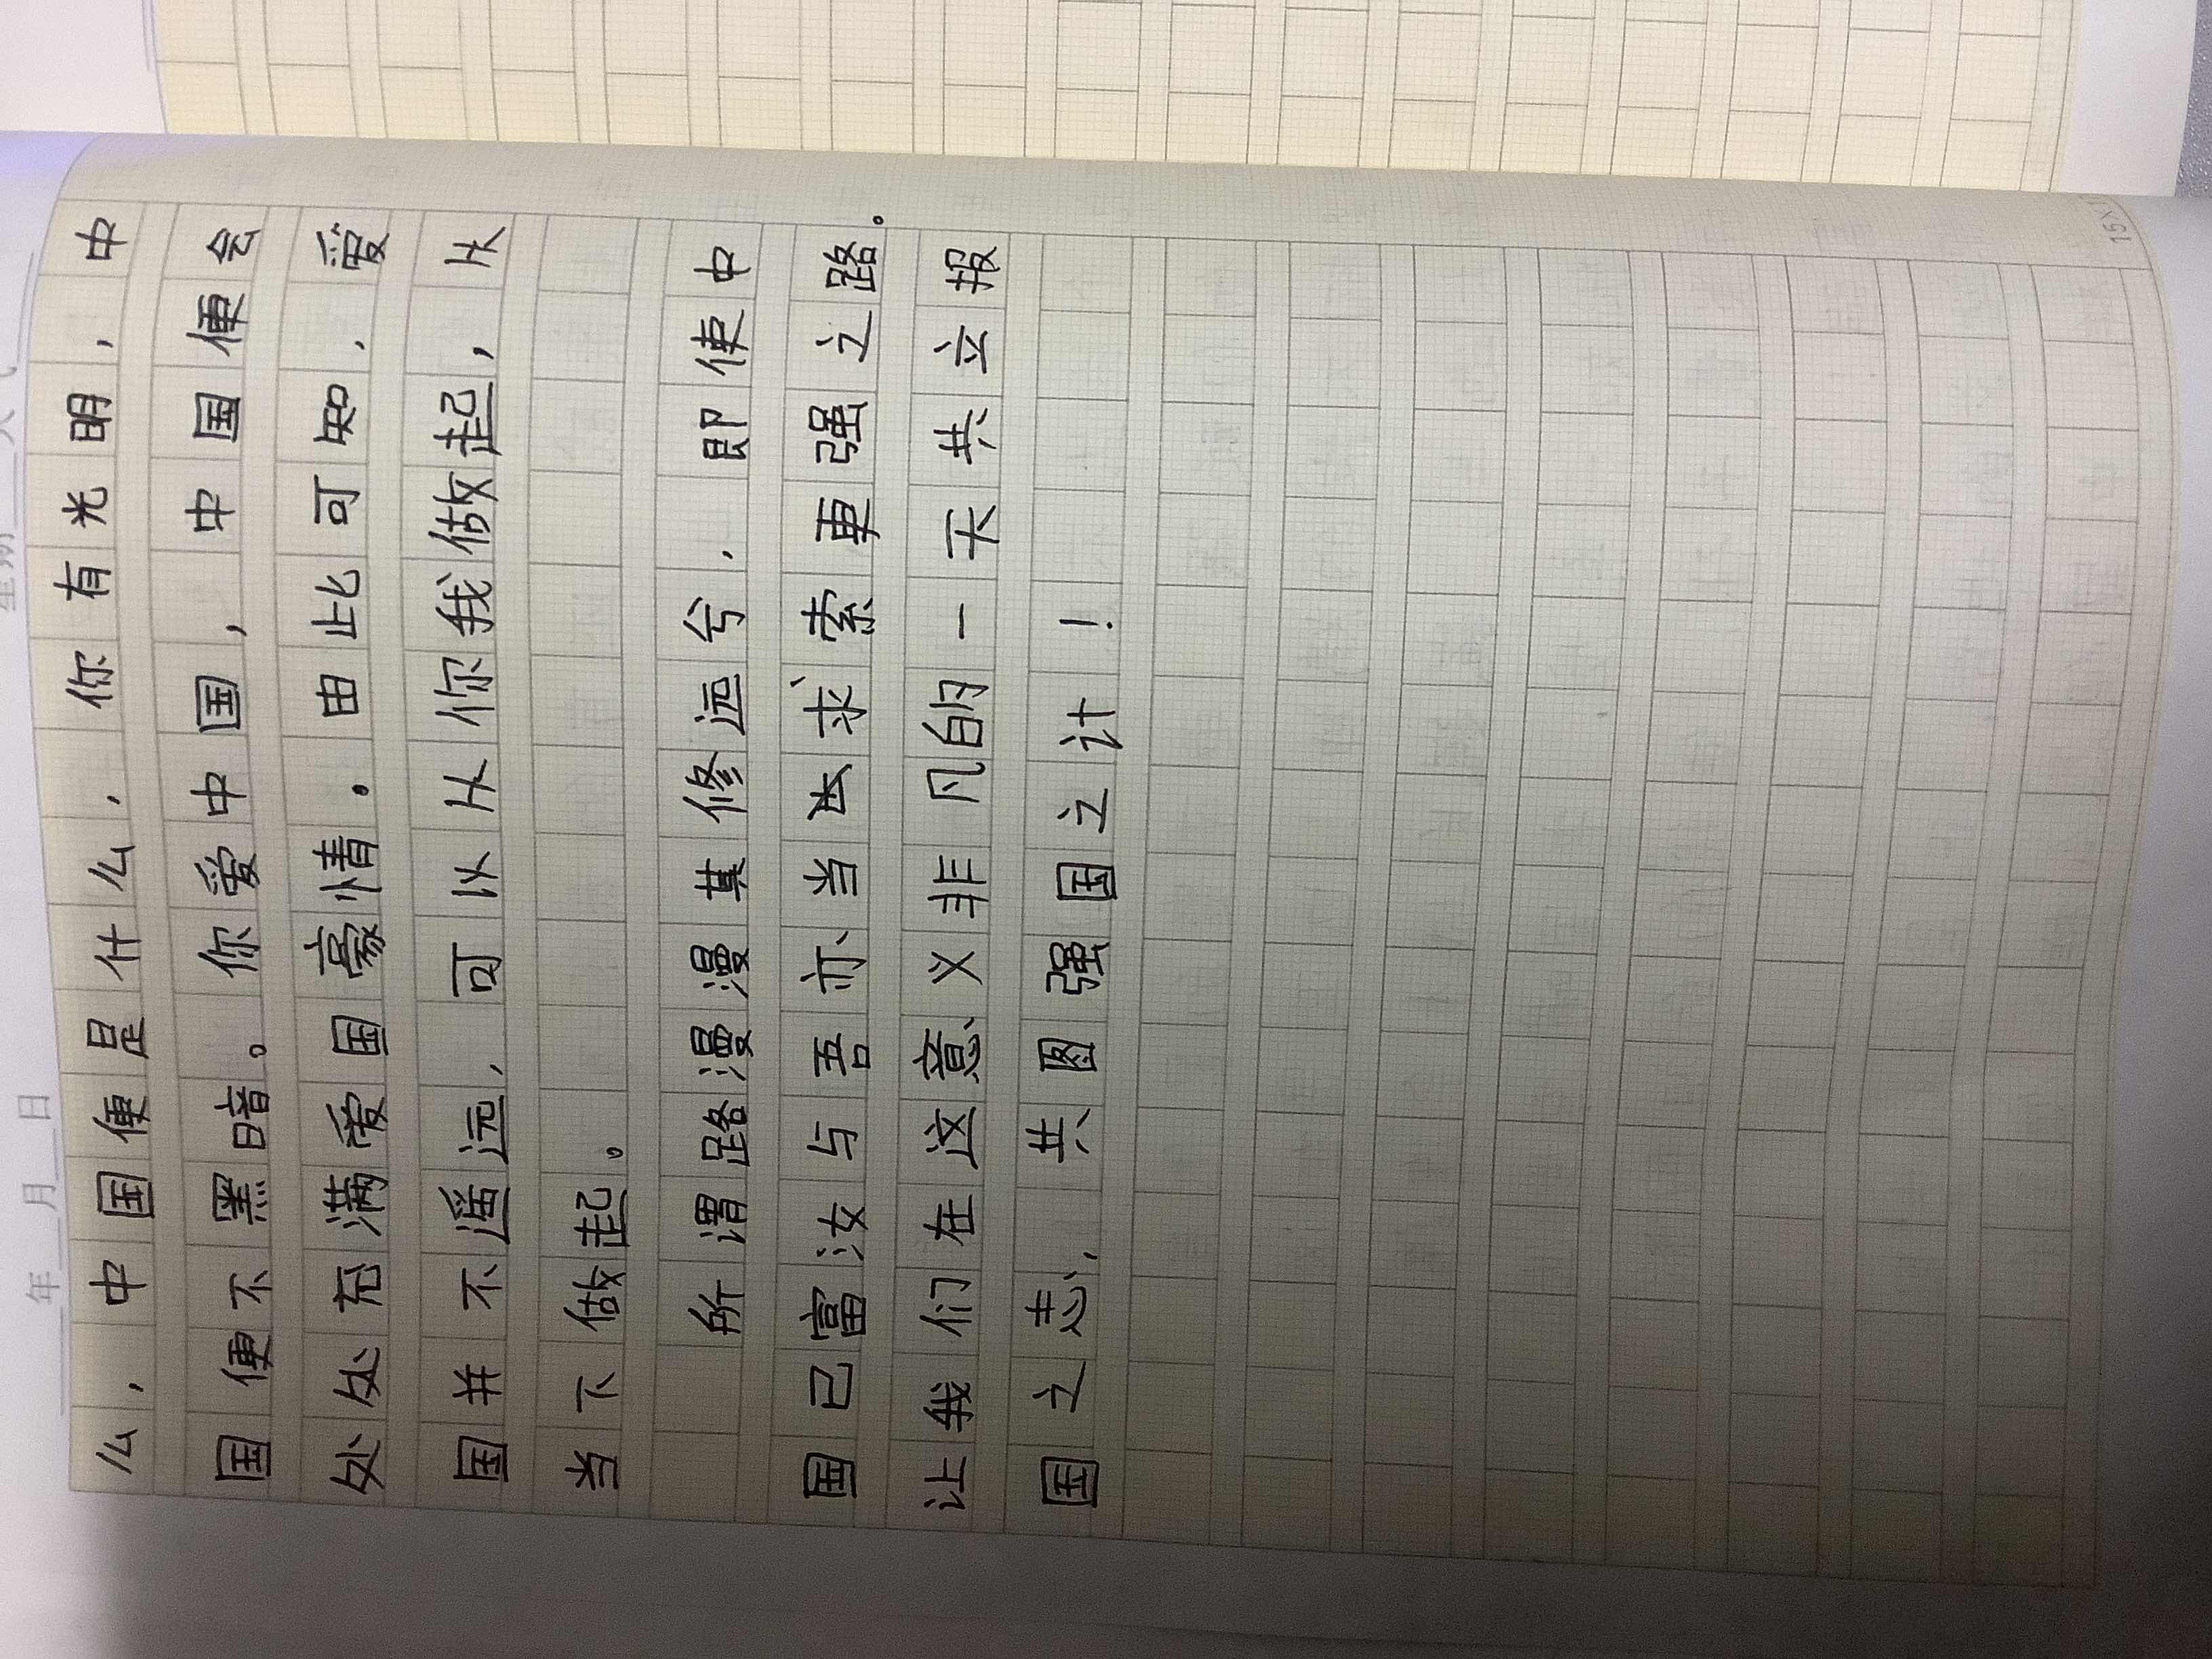 年 月 日 星期 天气
么，中国便是什么，你有光明，中
国便不黑暗。你爱中国，中国便会
处处充满爱国豪情。由此可知，爱
国并不遥远，可以从你我做起，从
当下做起。
所谓路漫漫其修远兮，即使中
国已富汝与吾亦当求索更强之路。
让我们在这意义非凡的一天共立报
国之志，共图强国之计！